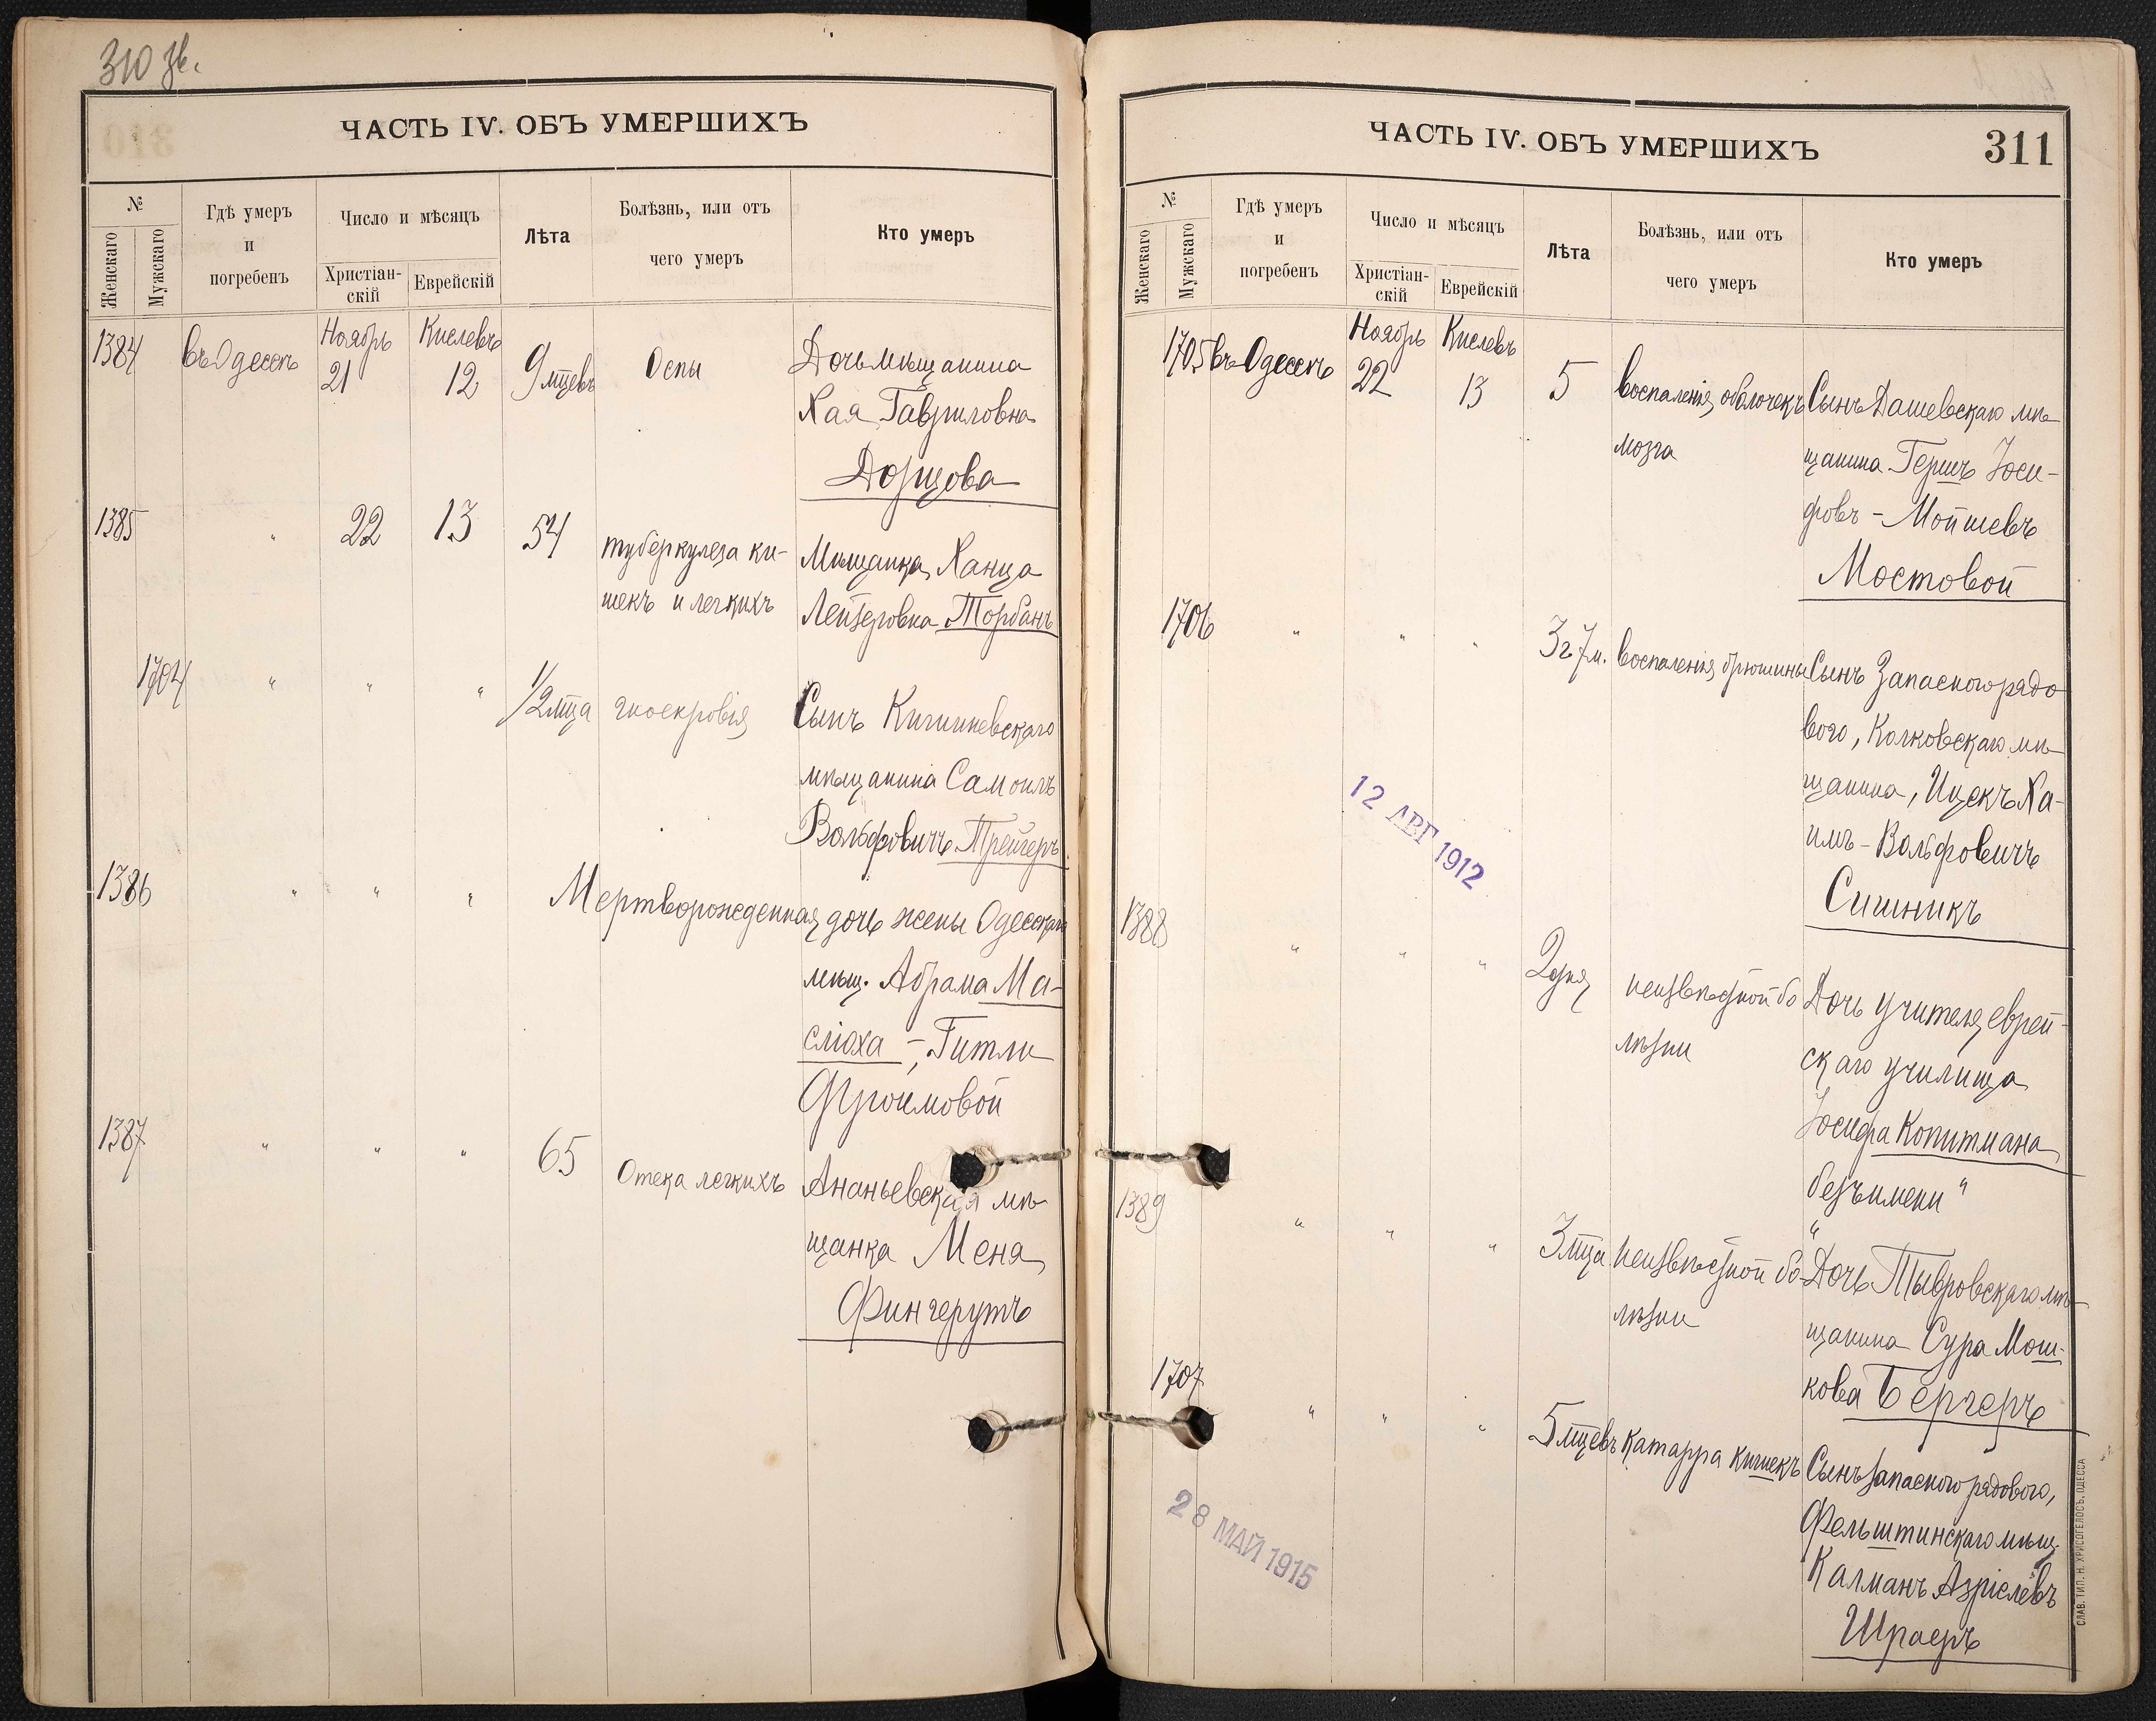 310 зв.
ЧАСТЬ IV. ОБЪ УМЕРШИХЪ
№
Женскаго
Мужскаго
Гдѣ умеръ
и
погребенъ
Число и мѣсяцъ
Христіан-
скій
Еврейскій
Лѣта
Болѣзнь, или отъ
чего умеръ
Кто умеръ
1384
въ Одессѣ
Ноябрь
21
Кислевъ
12
9 мцевъ
Оспы
Дочь мѣщанина
Хая Гавриловна
Дорцова
1385
"
22
13
54
туберкулеза ки-
шекъ и легкихъ
Мѣщанка Ханца
Лейзеровна Торбанъ
1704
" " "
1/2 мца
гноекровія
Сынъ Кишиневскаго
мѣщанина Самоилъ
Вольфовичъ Трейгеръ
1386
" " "
Мертворожденная дочь жены Одесскаго
мѣщ. Абрама Ма-
сліоха -, Гитли
Фроимовой
1387
" " "
65
Отека легкихъ
Ананьевская мѣ-
щанка Меня
Фингерутъ
ЧАСТЬ IV. ОБЪ УМЕРШИХЪ
311
№
Женскаго
Мужскаго
Гдѣ умеръ
и
погребенъ
Число и мѣсяцъ
Христіан-
скій
Еврейскій
Лѣта
Болѣзнь, или отъ
чего умеръ
Кто умеръ
1705
въ Одессѣ
Ноябрь
22
Кислевъ
13
5
воспаленія оболочекъ
мозга
Сынъ Дашевскаго мѣ-
щанина Гершъ Іоси-
фовъ - Мойшевъ
Мостовой
1706
" " "
3 г 7 м.
воспаленія брюшины
Сынъ Запасного рядо
вого, Колковскаго мѣ-
щанина, Ицекъ Ха-
имъ - Вольфовичъ
Сишникъ
12 АВГ 1912
1388
" " "
2 дня
неизвѣстной бо
лѣзни
Дочь учителя еврей-
скаго училища
Іосифа Копитмана
"безъ имени"
1389
" " "
3 мца
неизвѣстной бо-
лѣзни
Дочь Тывровскаго мѣ-
щанина Сура Мош-
кова Бергеръ
1707
" " "
5 мцевъ
катарра кишекъ
Сынъ запасного рядового,
Фельштинскаго мѣщ.
Калманъ Азріелевъ
Шраеръ
28 МАЙ 1915
СЛАВ. ТИП. Н. ХРИСОГЕЛОСЪ, ОДЕССА